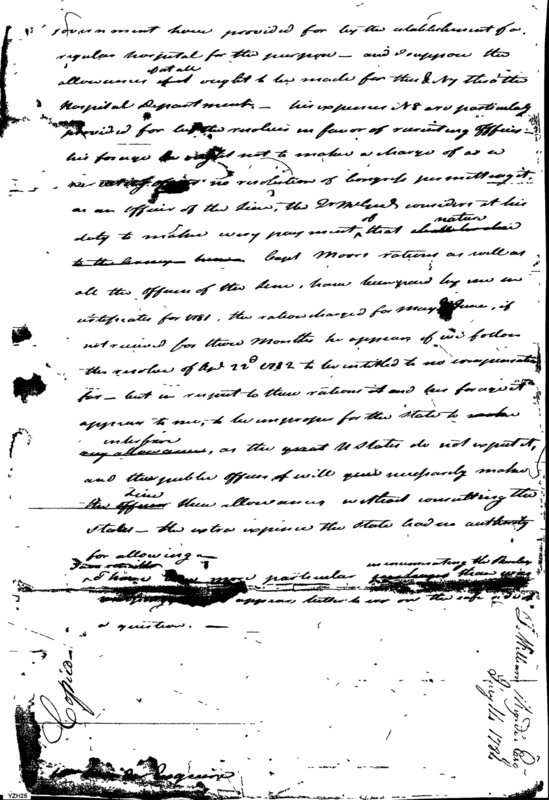 Government have provided for by the establishment of a
regular hospital for the purpose — and I suppose the
allowances if at all ought to be made for this by the
Hospital Department. — his expenses N8 are particularly
provided for by the resolves in favor of recruiting officers —
his forage he ought not to make a charge of as a
recruiting officer no resolution of Congress permitting it
as an Officer of the Line, the considers it his
duty to make every payment of that nature
to the Capt Moors rations as well as
all the Officers of the Line, have been paid by me in
certificates for 1781. the rations charged for May & June, if
not received for those Months he appears if we follow
the resolve of Apl 22d 1782 to be entitled to no compensation
for — but in respect to these rations it and his forage it
appears to me, to be improper for the State to make
interfere
any allowance, as the U States do not expect it,
and the public Officers, will necessarily make
Line
the officers their allowances without consulting the
States — the extra expence the State has no authority
for allowing —
I have been more particular in enumerating the
appears better to err on the safe side
a question. —
Copia
July 14 1784
Esquire
YZH25